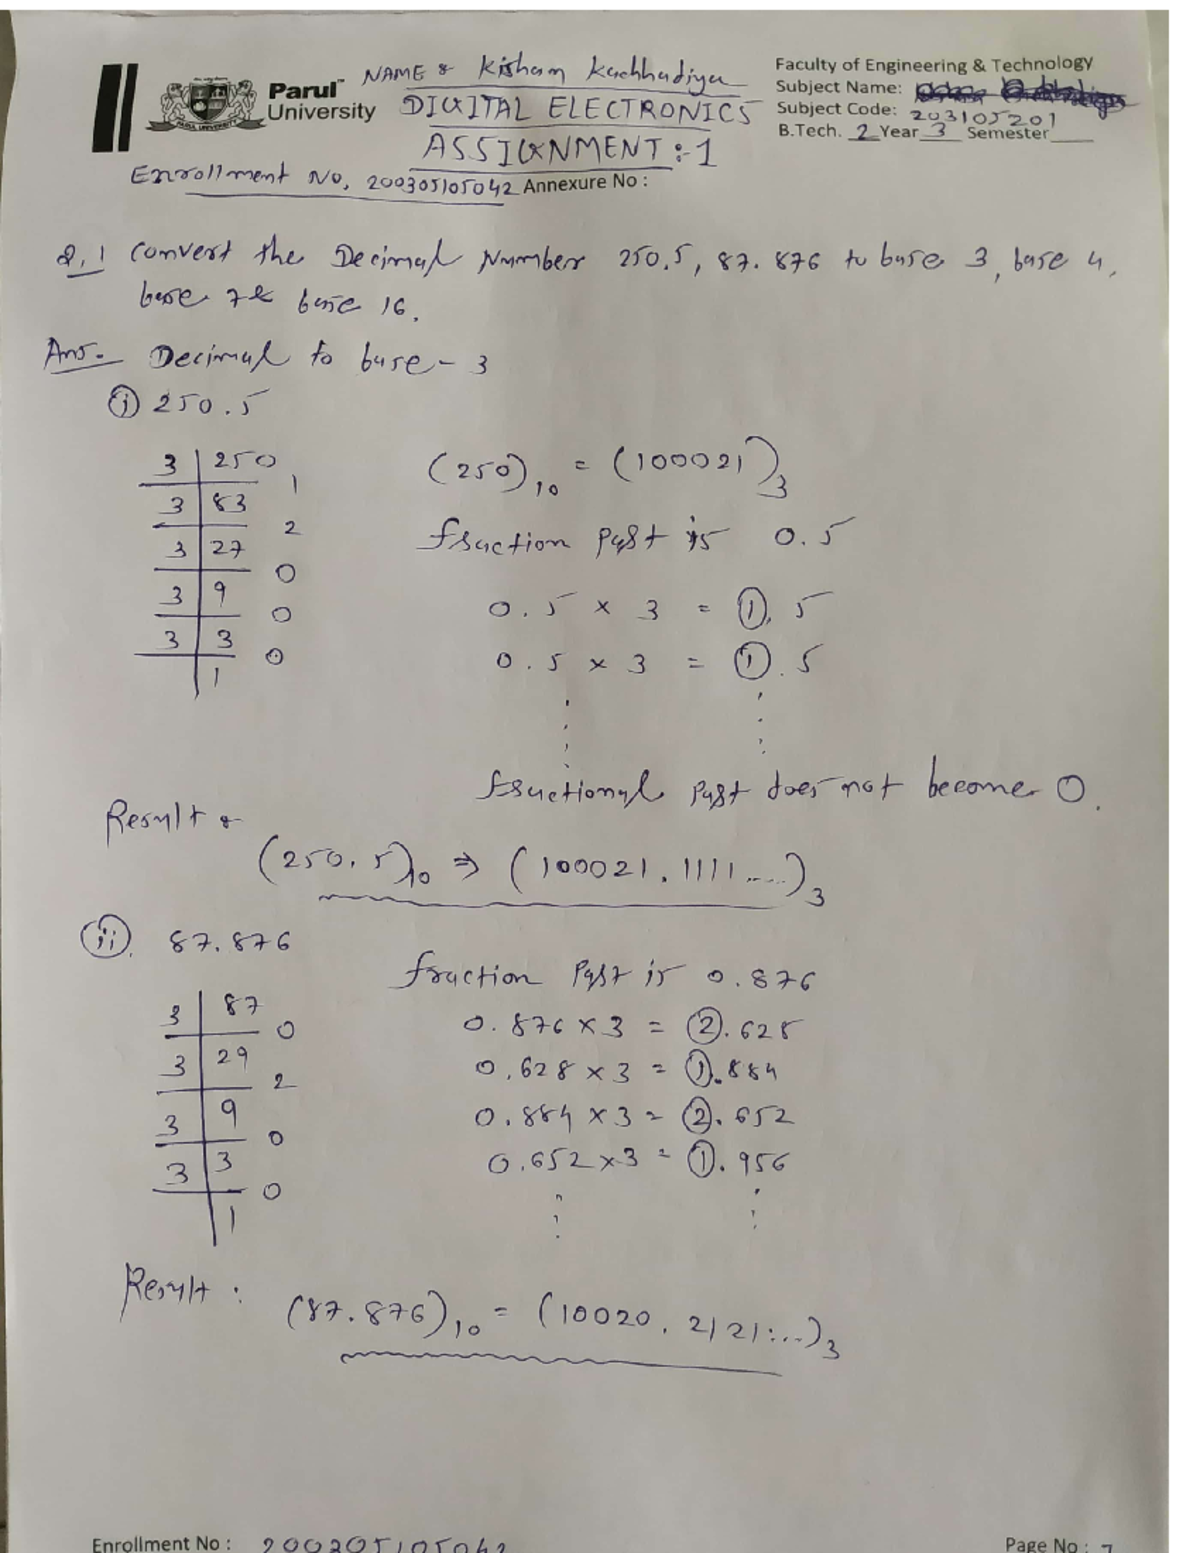 NAME : Kisham Kachhadiya
Parul™ University
DIGITAL ELECTRONICS
ASSIGNMENT : 1
Faculty of Engineering & Technology
Subject Name:
Subject Code: 203105201
B.Tech. 2 Year 3 Semester
Enrollment No, 200305105042 Annexure No :
Q.1 Convert the Decimal Number 250.5, 87.876 to base 3, base 4,
base 7 & base 16.
Ans. Decimal to base - 3
(i) 250.5
3 | 250
1
3 | 83
2
3 | 27
0
3 | 9
0
3 | 3
0
1
(250)10 = (100021)3
fraction part is 0.5
0.5 x 3 = 1.5
0.5 x 3 = 1.5
fractional part does not become 0.
Result :
(250.5)10 ⇒ (100021.1111.....)3
(ii) 87.876
3 | 87
0
3 | 29
2
3 | 9
0
3 | 3
0
1
fraction part is 0.876
0.876 x 3 = 2.628
0.628 x 3 = 1.884
0.884 x 3 = 2.652
0.652 x 3 = 1.956
Result :
(87.876)10 = (10020.2121:...)3
Enrollment No : 200305105042
Page No :